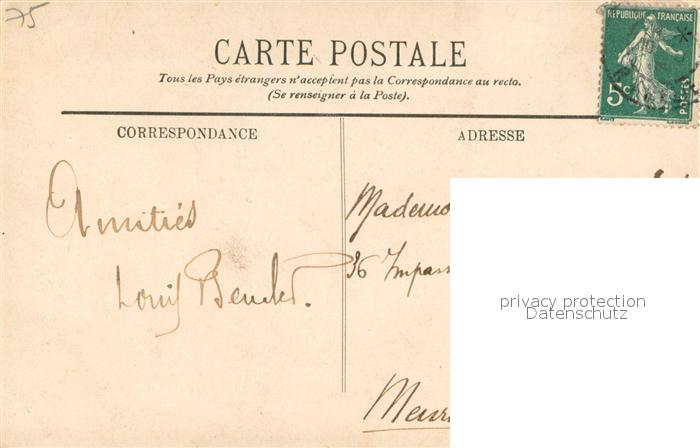 75
CARTE POSTALE
Tous les Pays étrangers n'acceptent pas la Correspondance au recto.
(Se renseigner à la Poste).
RÉPUBLIQUE FRANÇAISE
5c
POSTES
CORRESPONDANCE
ADRESSE
Amitiés
Louis
Mademo
36 Impass
Meur
privacy protection
Datenschutz